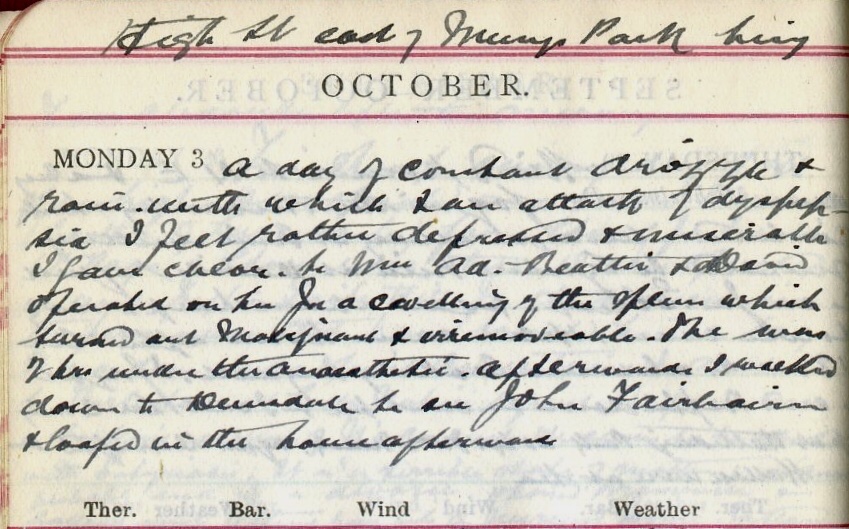 High St east of Mungo Park being
OCTOBER.
MONDAY 3 A day of constant drizzle &
rain. with which & an attack of dyspep-
sia I feel rather depressed & miserable
I gave chlor. to Mrs Ad. Beattie & David
operated on her for a swelling of the spleen which
turned out Malignant & irremoveable. She was
2 hrs under the anaesthetic. Afterwards I walked
down to to see John Fairbairn
& loafed in the house afterwards
Ther. Bar. Wind Weather